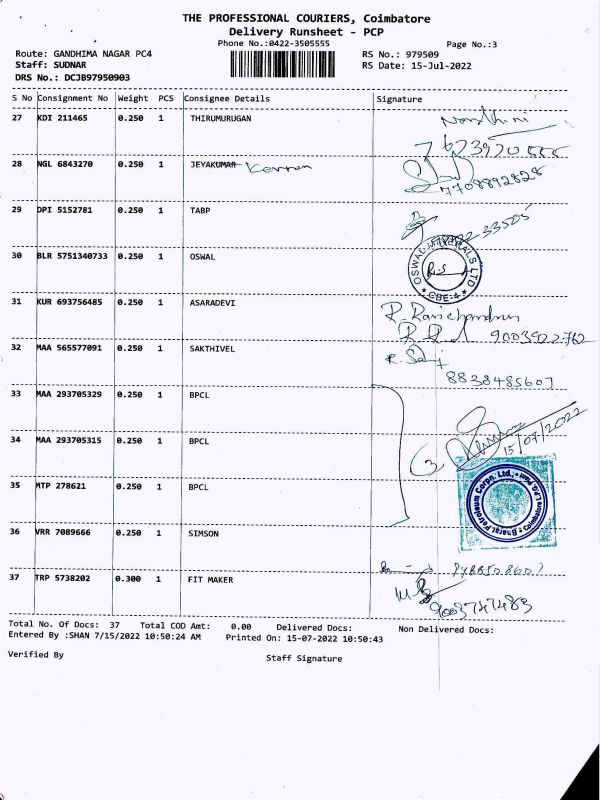 THE PROFESSIONAL COURIERS, Coimbatore
Delivery Runsheet - PCP
Phone No.:0422-3505555 Page No.:3
Route: GANDHIMA NAGAR PC4 RS No.: 979509
Staff: SUDNAR RS Date: 15-Jul-2022
DRS No.: DCJB97950903
S No Consignment No Weight PCS Consignee Details Signature
27 KDI 211465 0.250 1 THIRUMURUGAN
28 NGL 6843270 0.250 1 JEYAKUMAR
7708892828
29 DPI 5152781 0.250 1 TABP
33505
30 BLR 5751340733 0.250 1 OSWAL
OSWAL MINERALS LTD
CBE-4
31 KUR 693756485 0.250 1 ASARADEVI R. Ravichandran
9003922762
32 MAA 565577091 0.250 1 SAKTHIVEL
8838485607
33 MAA 293705329 0.250 1 BPCL
34 MAA 293705315 0.250 1 BPCL 15/07/2022
35 MTP 278621 0.250 1 BPCL
Bharat Petroleum Corpn. Ltd., Coimbatore
36 VRR 7089666 0.250 1 SIMSON
37 TRP 5738202 0.300 1 FIT MAKER
9003747483
Total No. Of Docs: 37 Total COD Amt: 0.00 Delivered Docs: Non Delivered Docs:
Entered By :SHAN 7/15/2022 10:50:24 AM Printed On: 15-07-2022 10:50:43
Verified By Staff Signature